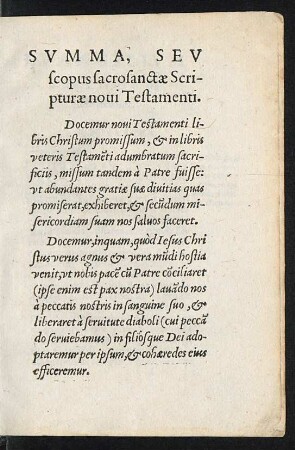 SVMMA, SEV
scopus sacrosanctæ Scri-
pturæ noui Testamenti.
Docemur noui Testamenti li
bris Christum promissum, & in libris
veteris Testamẽti adumbratum sacri
ficiis, missum tandem à Patre fuisse:
vt abundantes gratiæ suæ diuitias quas
promiserat, exhiberet, & secũdum mi
sericordiam suam nos saluos faceret.
Docemur, inquam, quòd Iesus Chri
stus verus agnus & vera mũdi hostia
venit, vt nobis pacẽ cũ Patre cõciliaret
(ipse enim est pax nostra) lauãdo nos
à peccatis nostris in sanguine suo, &
liberaret à seruitute diaboli (cui peccã
do seruiebamus) in filiósque Dei ado-
ptaremur per ipsum, & cohæredes eius
efficeremur.